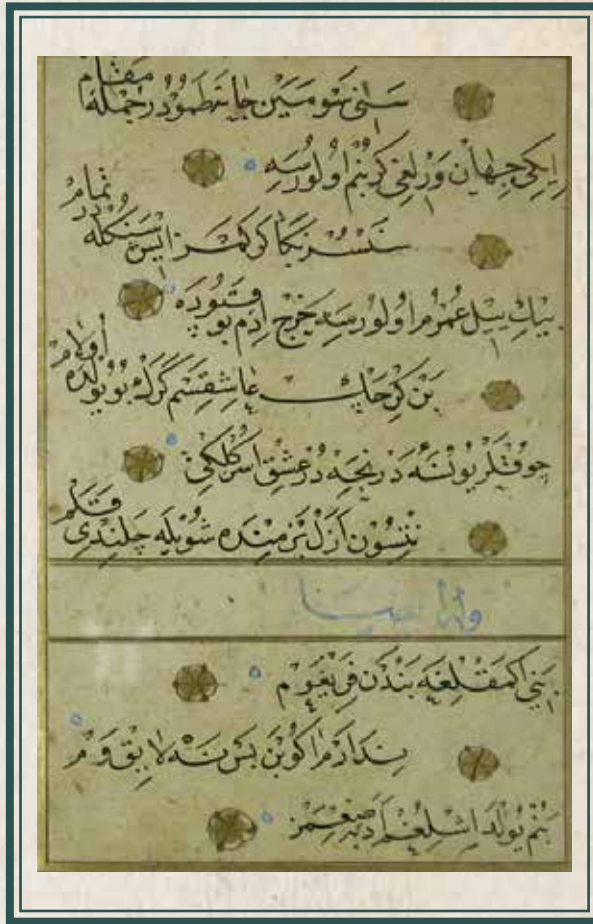 سنی سومین جانه طمودر جمله مقام
ایکی جهان ورلغی کر بنم اولورسه
سنسز بکا کرکمز ایش سنکله در تمام
بیك ییل عمرم اولورسه خرج ادم بو قپوده
بن کرچك عاشقسم کرك بو یولده اولام
چوقلر یونسه در نجه در عشق اسرکلکی
نتسون ازل بزمنده شویله چلندی قلم
وله ایضا
بنی اکمقلغه بندن فریغوم
بن نه لایق وم
بنم یولداشلغم ادبه صغمز